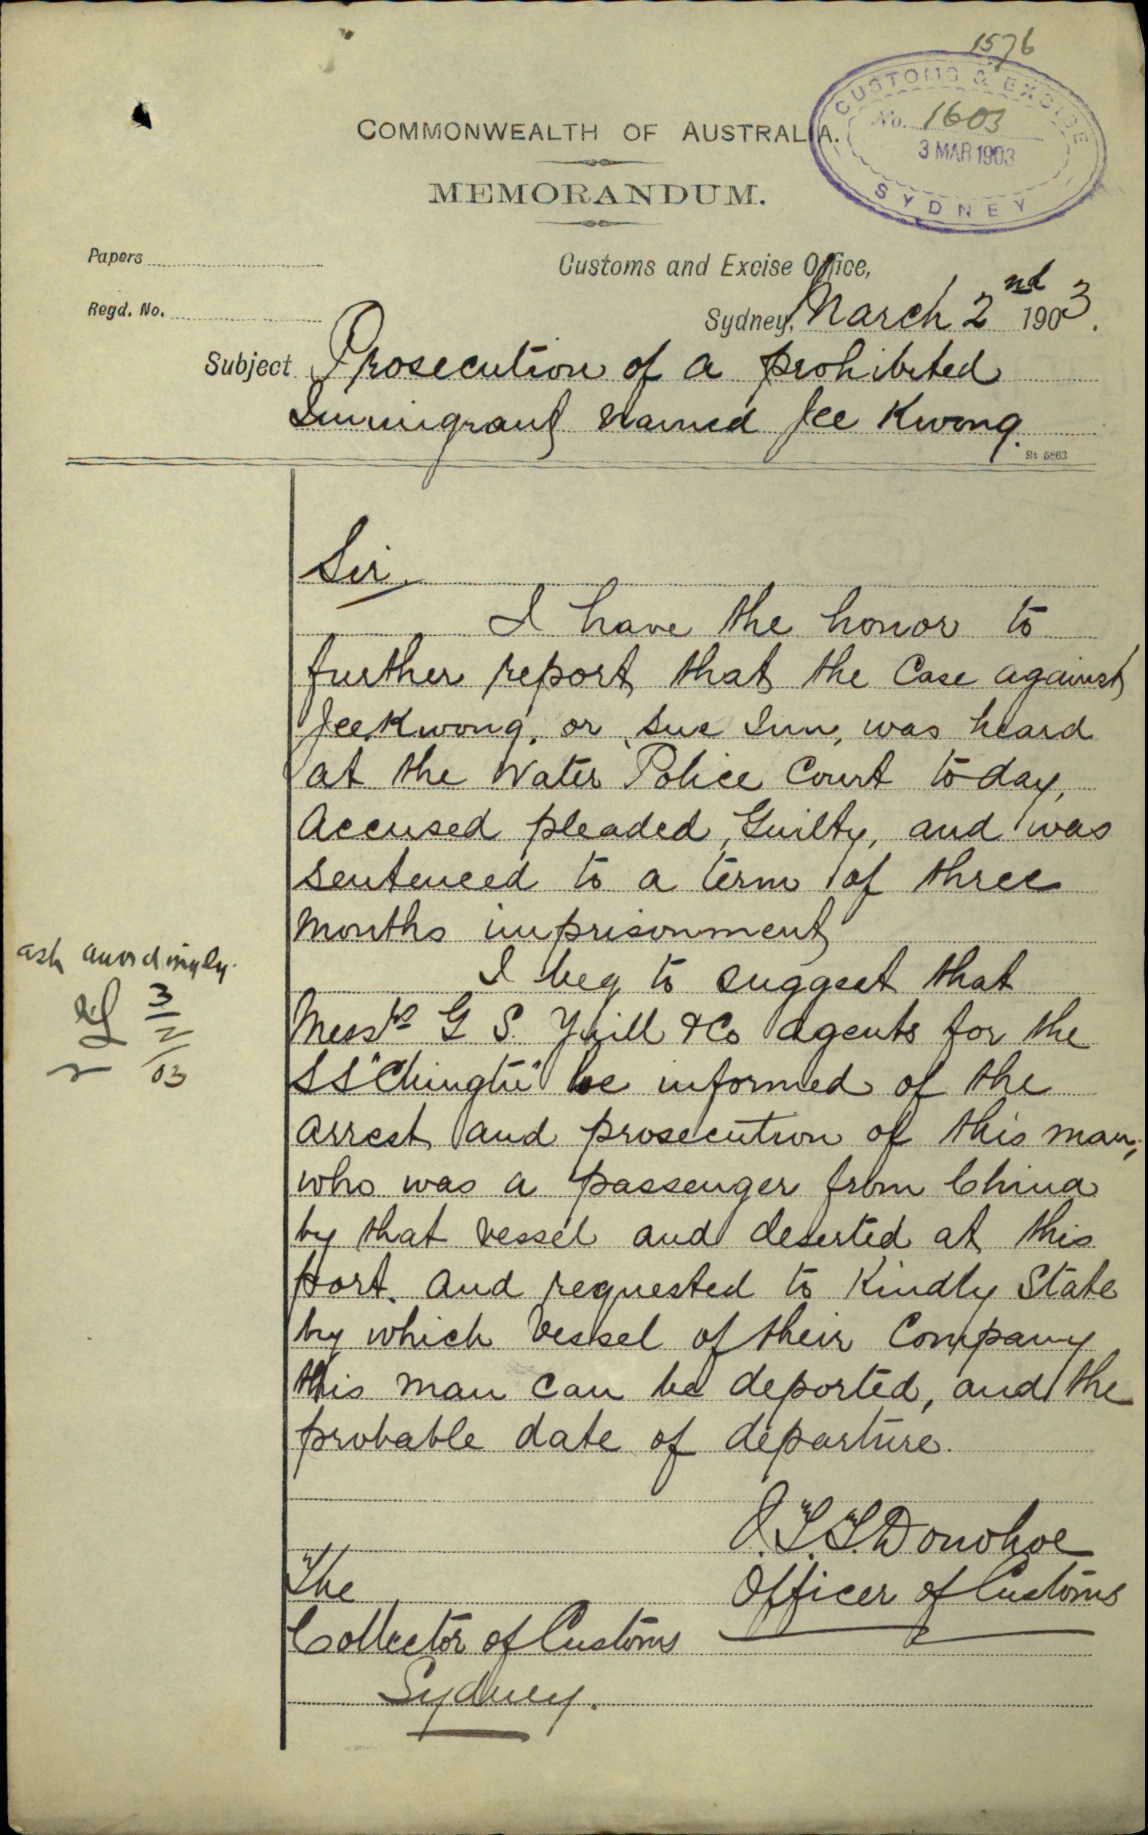 1576
CUSTOMS & EXCISE
No. 1603
3 MAR 1903
SYDNEY
COMMONWEALTH OF AUSTRALIA.
MEMORANDUM.
Papers
Customs and Excise Office,
Regd. No.
Sydney, March 2nd 1903.
Subject Prosecution of a prohibited
Immigrant named Jee Kwong.
St 5863
Sir,
I have the honor to
further report that the Case against
Jee Kwong, or Sue Sun, was heard
at the Water Police Court to day,
Accused pleaded, Guilty, and was
sentenced to a term of three
months imprisonment
I beg to suggest that
Messrs G S. Yuill & Co agents for the
SS "Chingtu" be informed of the
arrest and prosecution of this man,
who was a passenger from China
by that vessel and deserted at this
port. and requested to Kindly State
by which Vessel of their Company
this man can be deported, and the
probable date of departure.
ask accordingly.
3
03
J.T.T. Donohoe
Officer of Customs
The
Collector of Customs
Sydney.